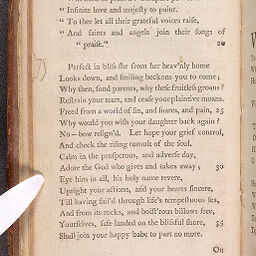 “ Infinite love and majesty to paint.
“ To thee let all their grateful voices raise,
“ And saints and angels join their songs of
“ praise.”
20
Perfect in bliſs ſhe from her heav'nly home
Looks down, and ſmiling beckons you to come;
Why then, fond parents, why theſe fruitleſs groans?
Reſtrain your tears, and ceaſe your plaintive moans.
Freed from a world of ſin, and ſnares, and pain, 25
Why would you wiſh your daughter back again?
No—bow reſign'd. Let hope your grief control,
And check the riſing tumult of the ſoul.
Calm in the proſperous, and adverſe day,
Adore the God who gives and takes away; 30
Eye him in all, his holy name revere,
Upright your actions, and your hearts ſincere,
Till having ſail'd through life's tempeſtuous ſea,
And from its rocks, and boiſt'rous billows free,
Yourſelves, ſafe landed on the bliſsful ſhore, 35
Shall join your happy babe to part no more.
On